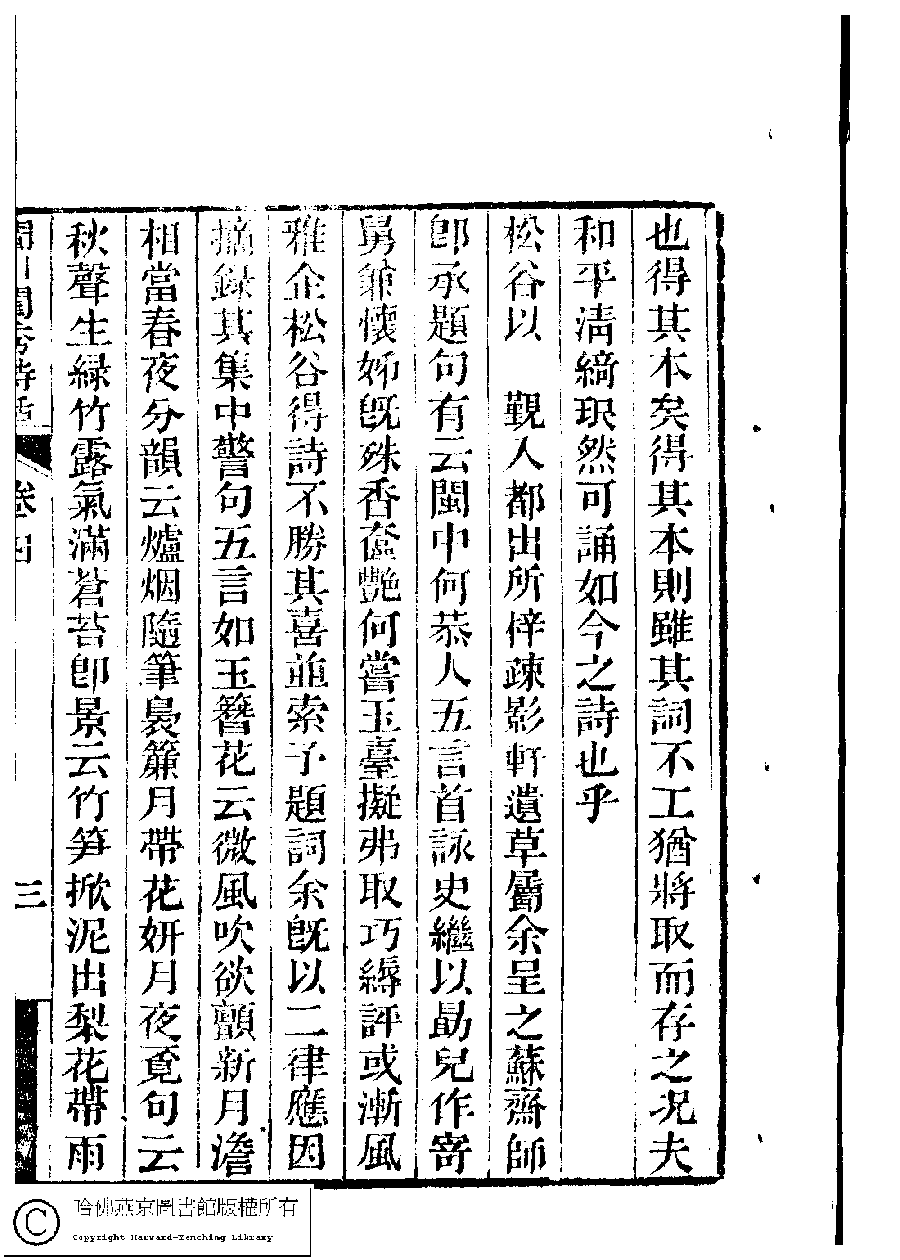 也得其本矣得其本則雖其詞不工猶將取而存之况夫
和平淸綺珉然可誦如今之詩也乎
松谷以　覲入都出所梓疎影軒遺草屬余呈之蘇齋師
卽承題句有云閩中何恭人五言首詠史繼以勗兒作寄
舅兼懷姊旣殊香奩艷何嘗玉臺擬弗取巧縟評或漸風
雅企松谷得詩不勝其喜並索予題詞余旣以二律應因
摘錄其集中警句五言如玉簪花云微風吹欲顫新月澹
相當春夜分韻云爐烟隨筆裊簾月帶花妍月夜覓句云
秋聲生緑竹露氣滿蒼苔卽景云竹笋掀泥出梨花帶雨
閨秀詩話 卷四 三
哈佛燕京圖書館版權所有
Copyright Harvard-Yenching Library